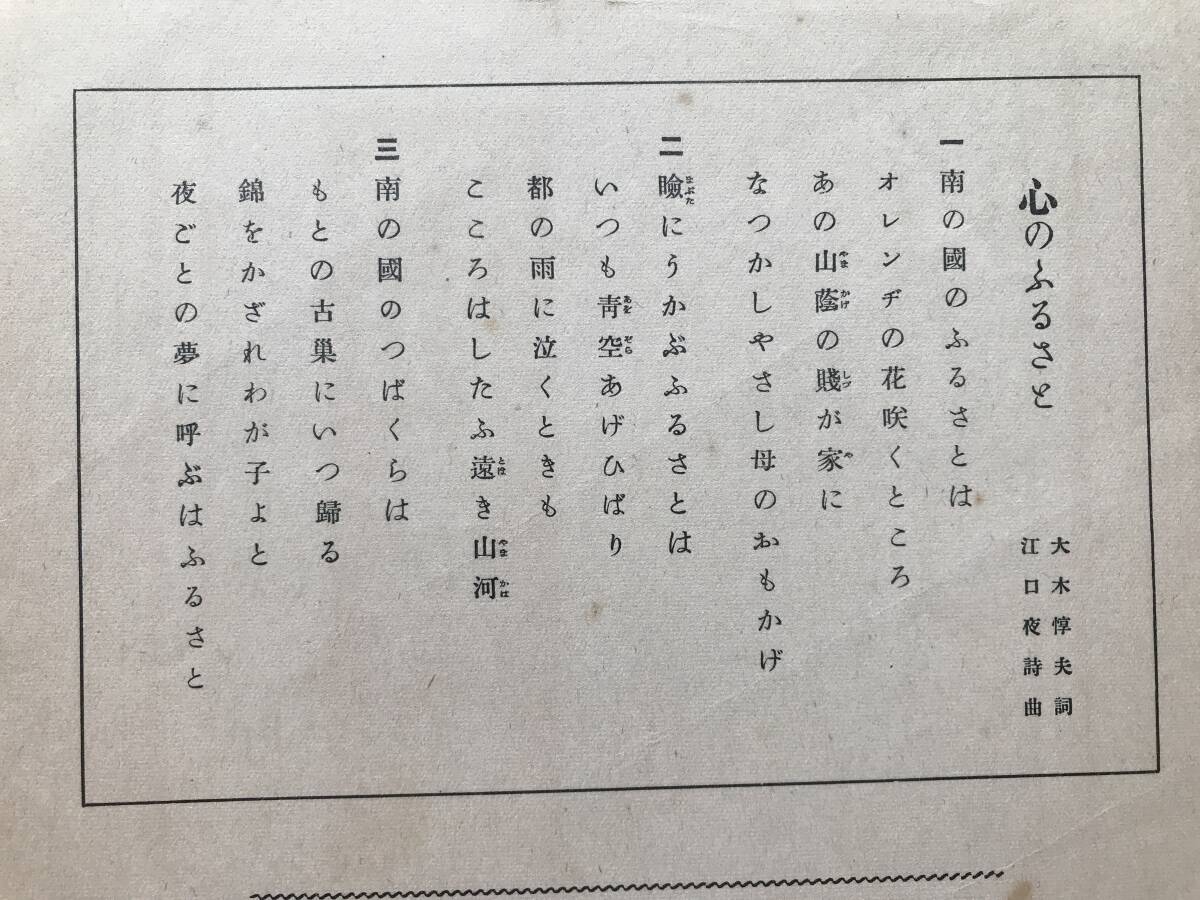 心のふるさと
大木惇夫詞
江口夜詩曲
一 南の國のふるさとは
オレンヂの花咲くところ
あの山蔭の賤が家に
なつかしやさし母のおもかげ
二 瞼にうかぶふるさとは
いつも靑空あげひばり
都の雨に泣くときも
こころはしたふ遠き山河
三 南の國のつばくらは
もとの古巣にいつ歸る
錦をかざれわが子よと
夜ごとの夢に呼ぶはふるさと